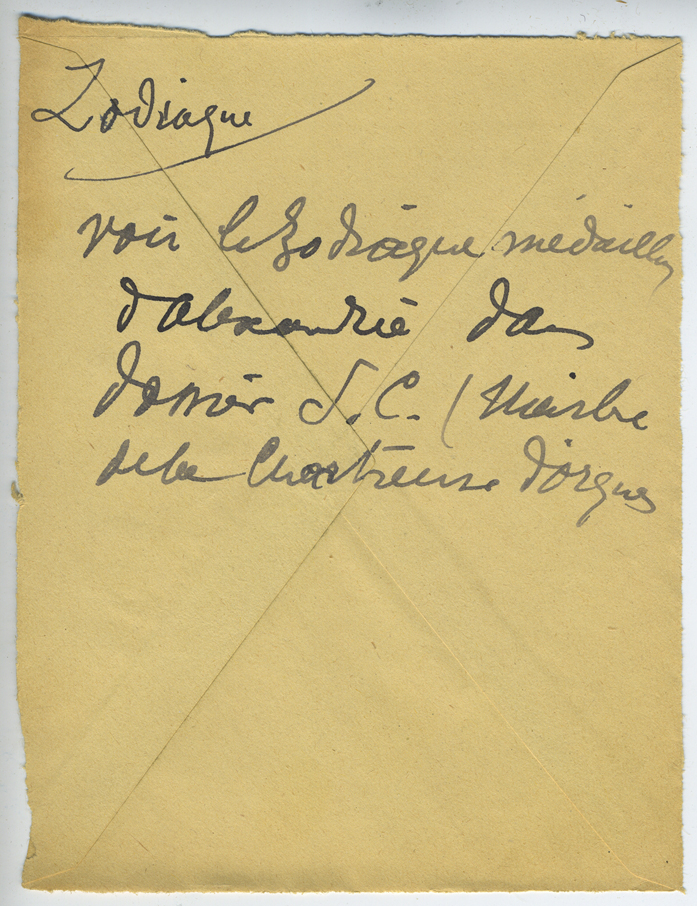 Zodiaque
voir le Zodiaque médaillon
d'alexandrie dans
dossier J.C. (Marbre
de la Chartreuse d'orgues